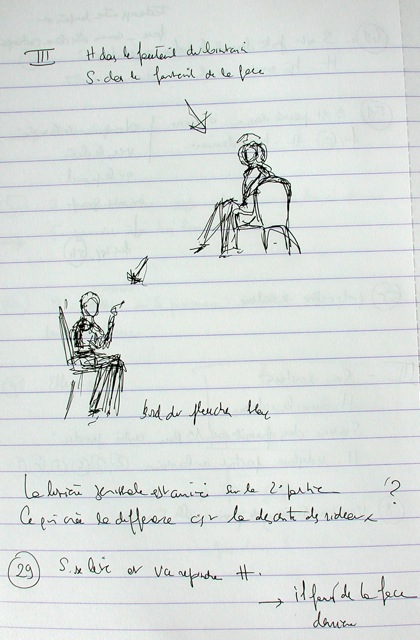 III
H dans le fauteuil du lointain
S. dans le fauteuil de la face
bord du plancher
La lumière générale est arrivée sur la 2e partie ?
Ce qui crée la différence c'est la descente des rideaux
29 S. se lève et va rejoindre H.
→ il fond de la face
derrière